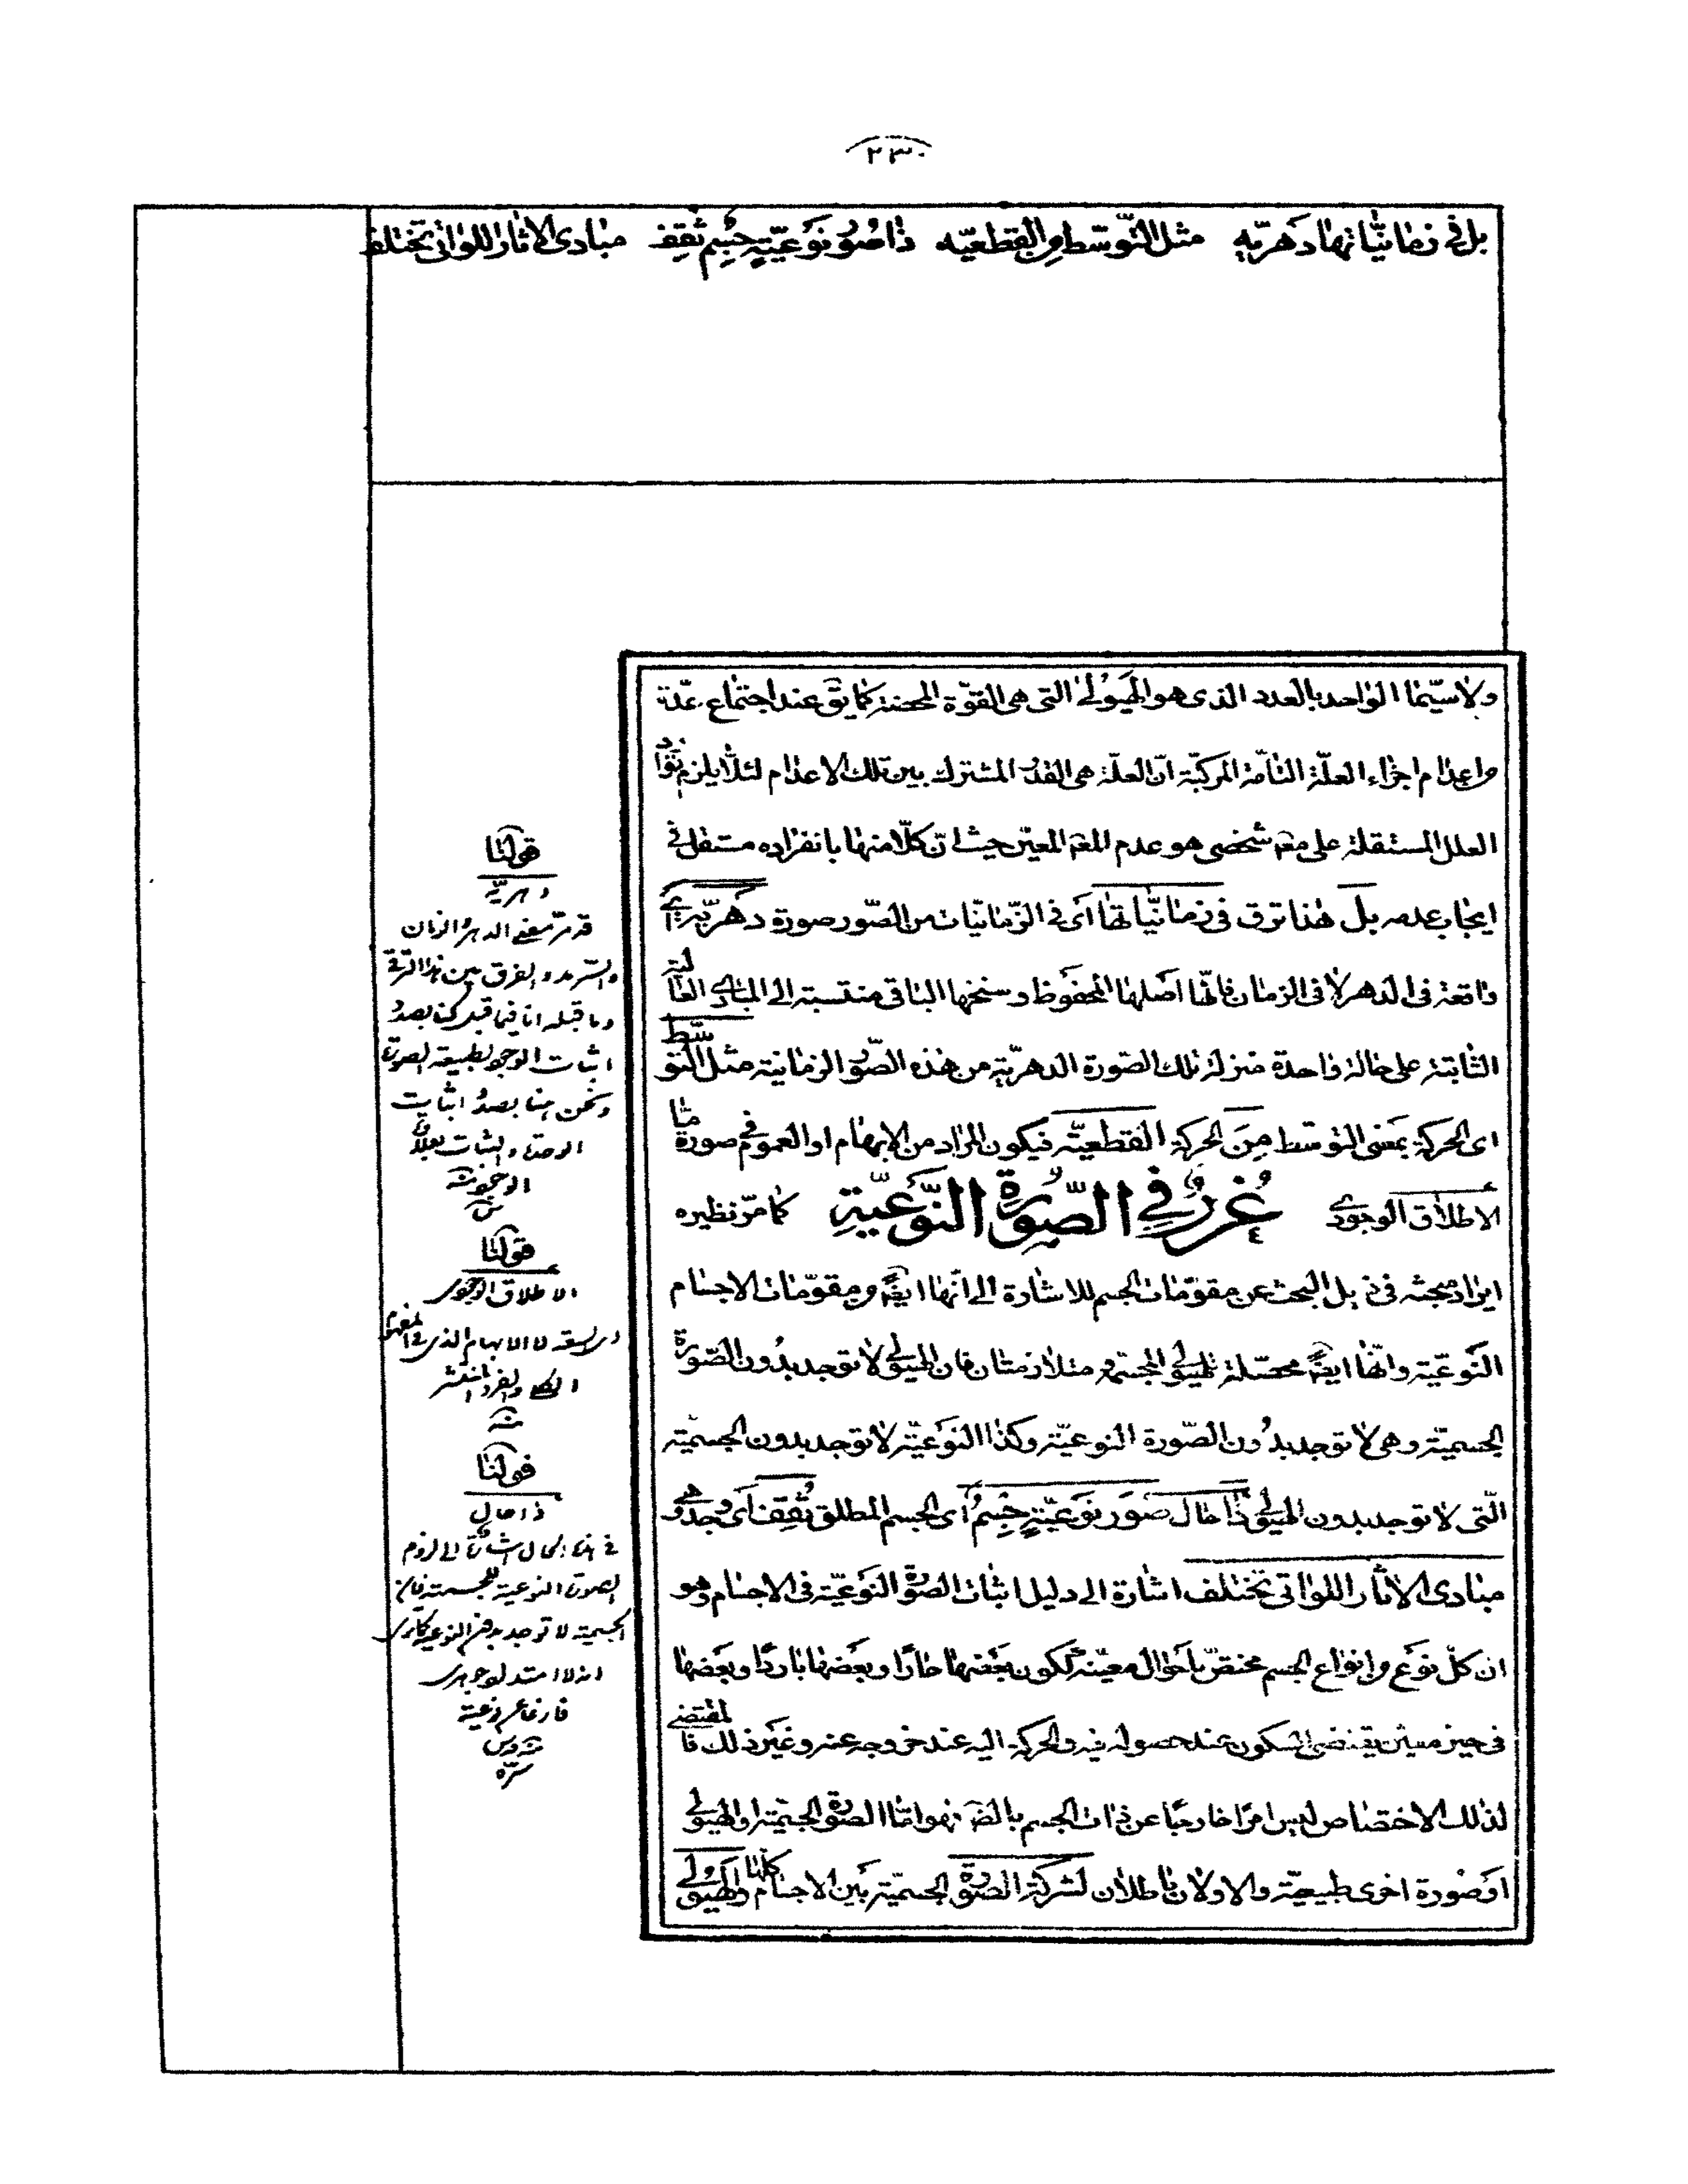 ٢٣٠
بل فی زمانیّاتها دهریّه مثل التّوسّط من القطعیّه ذا صور نوعیّةٍ جسم ثقف مبادی الاثار اللواتی تختلف
ولاسیّما الواحد بالعدد الذی هو الهیولی التی هی القوّة المحضة کما یق عند اجتماع عدّة
من اعدام اجزاء العلّة التامّة المرکبّة انّ العلّة هی القدر المشترک بین تلک الاعدام لئلّا یلزم توارد
العلل المستقلة علی معه شخصی هو عدم المعه المعیّن حیث انّ کلّا منها بانفراده مستقل فی
ایجاب عدمه بل هذا ترق فی زمانیّاتها ای فی الزّمانیّات من الصّور صورة دهریّه ای
واقعة فی الدهر لا فی الزمان فانّها اصلها المحفوظ وسنخها الباقی منتسبة الی المبادی العالیة
الثّابتة علی حالة واحدة منزلة تلک الصّورة الدهریّة من هذه الصّور الزمانیة مثل التّوسّط
ای الحرکة بمعنی التوسّط من الحرکة القطعیّه فیکون المراد من الابهام او العموم فی صورة مّا
الاطلاق الوجودی غررٌ فی الصّورة النّوعیّة کما مرّ نظیره
ایراد مبحثه فی ذیل البحث عن مقوّمات الجسم للاشارة الی انّها ایضً من مقوّمات الاجسام
النّوعیّة وانّها ایضً محصّلة للهیولی المجسّمة متلازمتان فان الهیولی لا توجد بدون الصّورة
الجسمیّة وهی لا توجد بدون الصّورة النوعیّة وکذا النوعیّة لا توجد بدون الجسمیّة
الّتی لا توجد بدون الهیولی ذا حال صور نوعیّةٍ جسمٌ ای الجسم المطلق ثقف ای وجد وهی
مبادی الاثار اللواتی تختلف اشارة الی دلیل اثبات الصّورة النّوعیّة فی الاجسام وهو
ان کلّ نوع من انواع الجسم مختصّ باحوال معیّنة ککون بعضها حارًّا وبعضها باردًا وبعضها
فی حیز معین یقتضی السکون عند حصوله فیه والحرکة الیه عند خروجه عنه وغیر ذلک فالمقتضی
لذلک الاختصاص لیس امرًا خارجیًا عن ذات الجسم بالضّ فهو امّا الصّورة الجسمیّة او الهیولی
او صورة اخری طبیعیّة والاولان باطلان لشرکة الصّورة الجسمیّة بین الاجسام کلّها والهیولی
قولنا
دهریّه
قد مرّ معنی الدهر والزمان
والسّرمد والفرق بین هذا الترقی
وما قبله انا فیما قبل کنا بصدد
اثبات الوجود لطبیعة الصورة
ونحن هنا بصدد اثبات
الوحدة والثبات لذلک
الوجود منه
قولنا
الاطلاق الوجودی
والسعة لا الابهام الذی فی المفهوم
الکلی والفرد المنتشر
منه
قولنا
ذا حال
فی هذا الحال اشارة الی لزوم
الصورة النوعیة للجسمیة فان
الجسمیة لا توجد بدون النوعیة کما تری
انه لا امتداد جوهری
فارغا عن نوعیة
منه قدس
سرّه